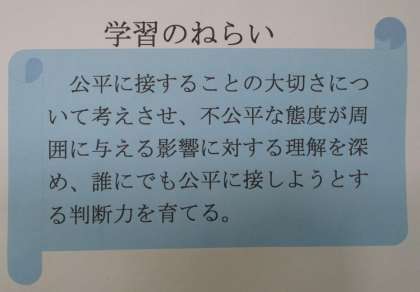 学習のねらい
公平に接することの大切さにつ
いて考えさせ、不公平な態度が周
囲に与える影響に対する理解を深
め、誰にでも公平に接しようとす
る判断力を育てる。